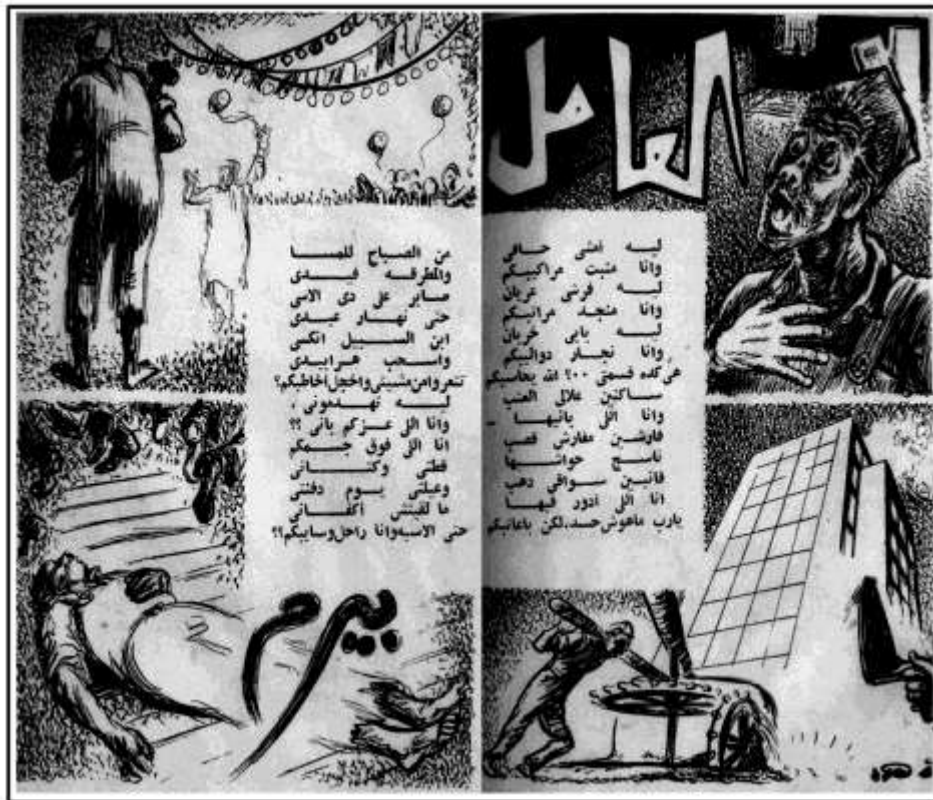 العامل
ليه امشى حافى
وانا منبت مراكيبكم
ليه فرشى عريان
وانا منجد مراتبكم
ليه بابى خربان
وانا نجار دواليبكم
هى كده قسمتى ٠٠؟ الله يحاسبكم
ساكنين علالى العتب
وانا اللى بانيها
فارشين مفارش قصب
ناسج حواشيها
قانيين سواقى دهب
انا اللى ادور فيها
يارب ماهوش حسد.لكن باعاتبكم
من الصباح للمسا
والمطرقه فيدى
صابر على دى الاسى
حتى نهار عيدى
ابن السبيل انكسى
واسحب هرابيدى
تتعروا من مشيتى واخجل أخاطبكم؟
ليه تهدمونى ،
وانا اللى عزكم بانى ؟؟
انا اللى فوق جسمكم
قطنى وكتانى
وعيلتى يوم دفنتى
ما لقيتش أكفانى
حتى الاسيه وانا راحل وسايبكم؟!
بيرم